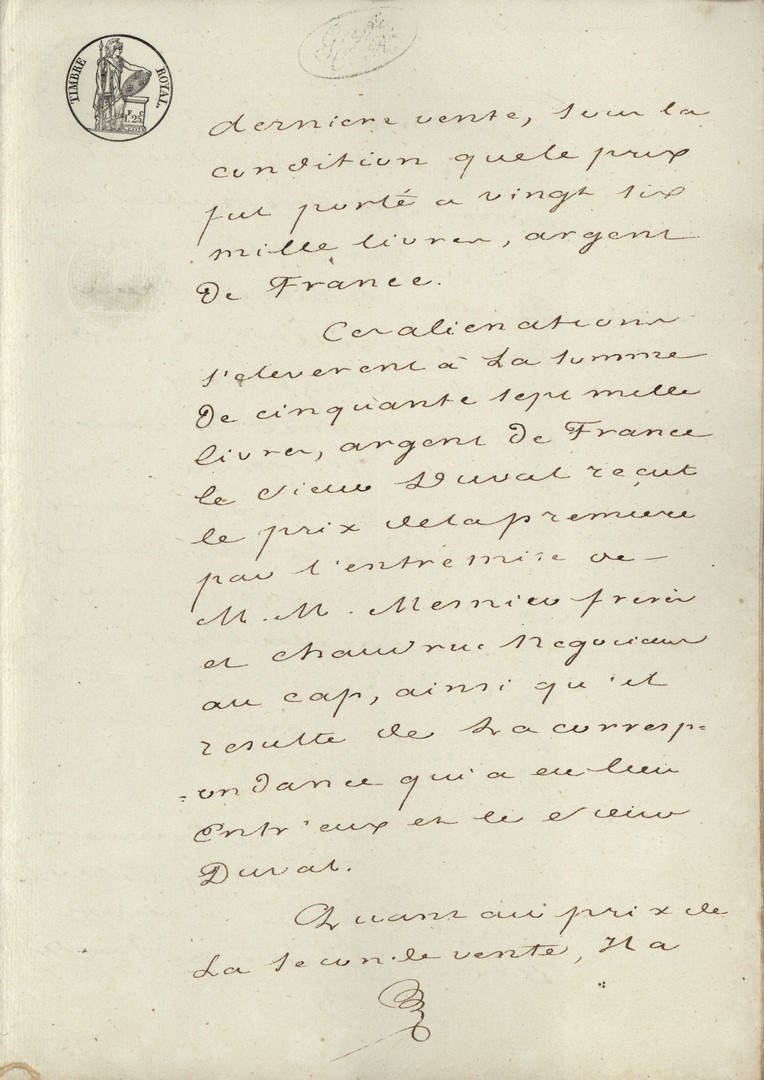 TIMBRE ROYAL.
F. C.
1.25
derniere vente, sous la
condition quele prix
fut porté a vingt six
mille livres, argent
De France.
Ces alienations
s'eleverent à La somme
De cinquante sept mille
livres, argent De France
le Sieur Duval reçut
le prix delapremiere
par l'entremise de
M. M. Mesnier freres
et chaudruc Negocians
au cap, ainsi qu'il
resulte de La corresp=
=ondance qui a eu lieu
Entr'eux et le Sieur
Duval.
Quant au prix de
La seconde vente, Il a